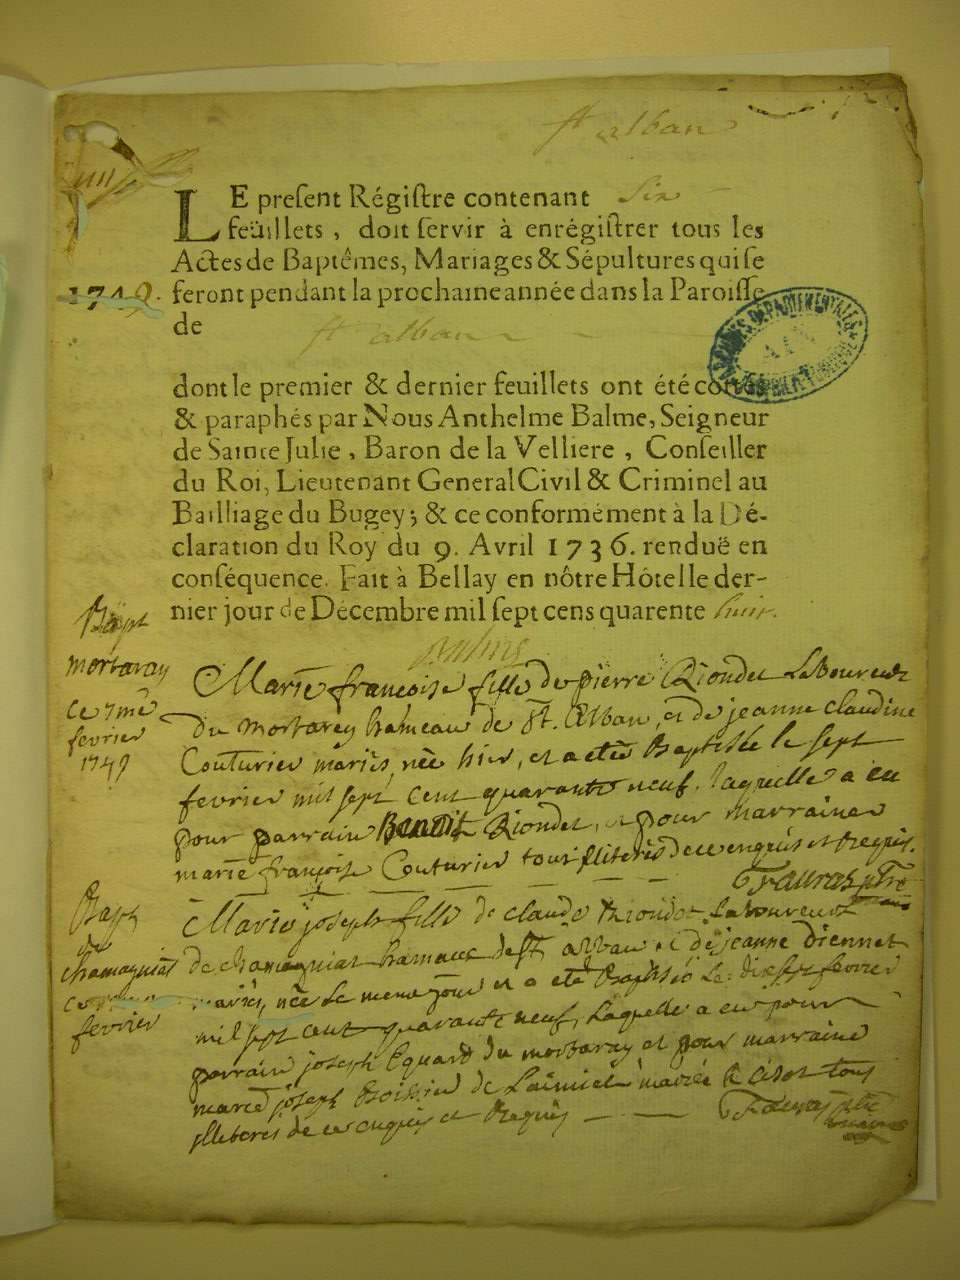 st alban
LE preſent Régiſtre contenant Six
feüillets, doit ſervir à enrégiſtrer tous les
Actes de Baptêmes, Mariages & Sépultures qui ſe
1749. feront pendant la prochaine année dans la Paroiſſe
de st alban
ARCHIVES DÉPARTEMENTALES
AIN
dont le premier & dernier feuillets ont été cottés
& paraphés par Nous Anthelme Balme, Seigneur
de Sainte Julie, Baron de la Velliere, Conſeiller
du Roi, Lieutenant General Civil & Criminel au
Bailliage du Bugey; & ce conformément à la Dé-
claration du Roy du 9. Avril 1736. renduë en
conſéquence. Fait à Bellay en nôtre Hôtel le der-
nier jour de Décembre mil ſept cens quarente huit.
Balme
Bapt
mortaray
ce 7me
fevrier
1749
Marie françoise fille de pierre Riondet Laboureur
du mortarey hameau de St. Alban, et de jeanne claudine
Couturier mariés, née hier, et a etée Baptisée le sept
fevrier mil sept cent quarante neuf. laquelle a eu
pour parrain Benoit Riondet, et pour marraine
marie françoise Couturier tous illiterés de ce enquis et requis.
Favras ptre
Bapt
de
chamagniat
ce
fevrier
Marie joseph fille de claude Riondet Laboureur
de chamagniat hameau de St alban et de jeanne Diennet
mariés, née le meme jour et a eté Baptisée le dix sept fevrier
mil sept cent quarante neuf, Laquelle a eu pour
parrain joseph Equard du mortaray et pour marraine
marie joseph Boissieu de mariée tous
illiterés de ce enquis et Requis
Favras ptre